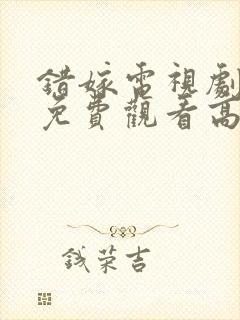 錯嫁電視劇
免費觀看高
钱荣吉